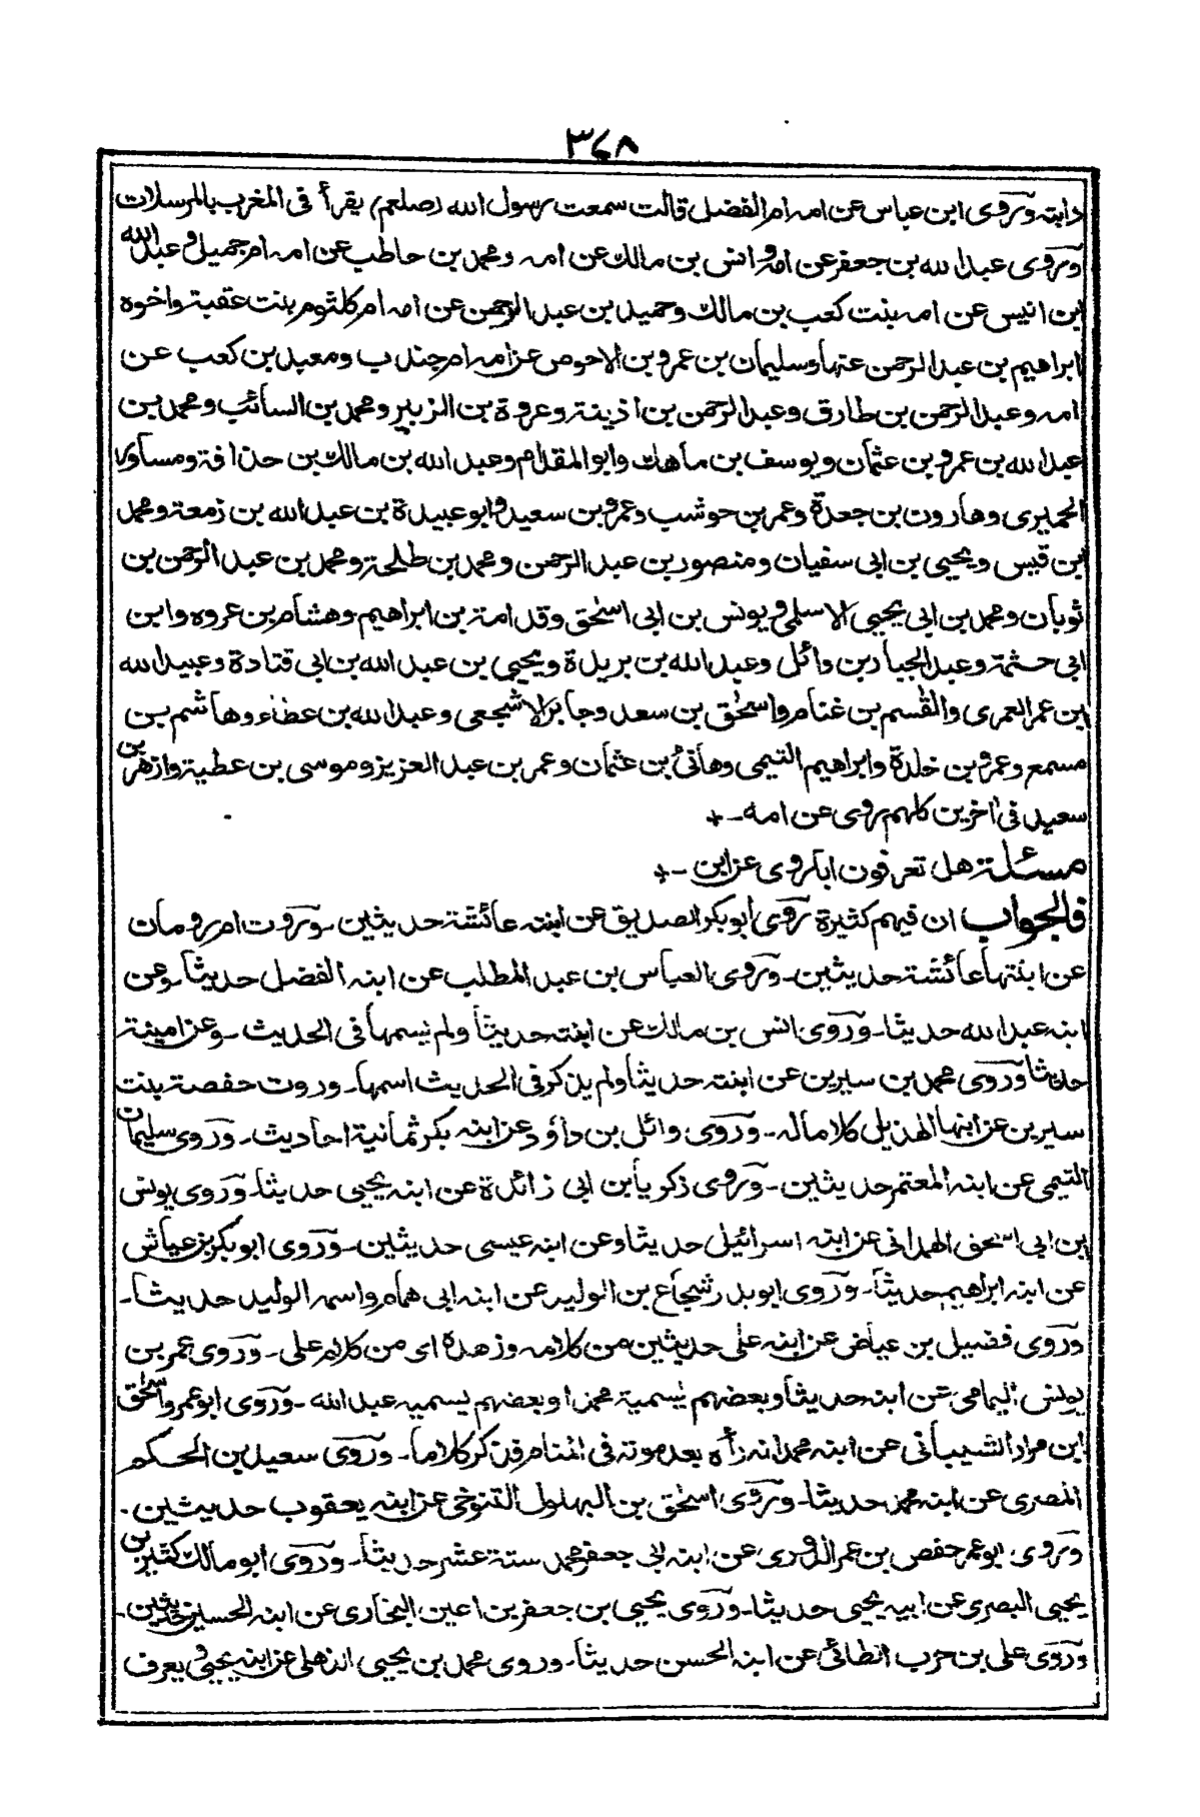 ٣٤٨
دابته وروى ابن عباس عن امه ام الفضل قالت سمعت رسول الله (صلعم) يقرأ فى المغرب بالمرسلات
وروى عبد الله بن جعفر عن امه وانس بن مالك عن امه ومحمد بن حاطب عن امه ام جميل وعبد الله
بن انيس عن امه بنت كعب بن مالك وحميد بن عبد الرحمن عن امه ام كلثوم بنت عقبة واخوه
ابراهيم بن عبد الرحمن عنها وسليمان بن عمرو بن الاحوص عن امه ام جندب ومعبد بن كعب عن
امه وعبد الرحمن بن طارق وعبد الرحمن بن اذينة وعروة بن الزبير ومحمد بن السائب ومحمد بن
عبد الله بن عمرو بن عثمان ويوسف بن ماهك وابو المقدام وعبد الله بن مالك بن حذافة ومساور
الحميرى وهارون بن جعدة وعمر بن حوشب وعمرو بن سعيد وابو عبيدة بن عبد الله بن زمعة ومحمد
بن قيس ويحيى بن ابى سفيان ومنصور بن عبد الرحمن ومحمد بن طلحة ومحمد بن عبد الرحمن بن
ثوبان ومحمد بن ابى يحيى الاسلمى ويونس بن ابى اسحٰق وقدامة بن ابراهيم وهشام بن عروه وابن
ابى حثمة وعبد الجبار بن وائل وعبد الله بن بريدة ويحيى بن عبد الله بن ابى قتادة وعبيد الله
بن عمر العمرى والقٰسم بن غنام واسحٰق بن سعد وجابر الاشجعى وعبد الله بن عطاء وهاشم بن
مسمع وعمرو بن خلدة وابراهيم التيمى وهانئ بن عثمان وعمر بن عبد العزيز وموسى بن عطية وازهر بن
سعيد فى اٰخرين كلهم روى عن امه -+
مسئلة هل تعرفون ابا روى عن ابن -+
فالجواب ان فيهم كثيرة روى ابو بكر الصديق عن ابنته عائشة حديثين - وروت ام رومان
عن ابنتها عائشة حديثين - وروى العباس بن عبد المطلب عن ابنه الفضل حديثا - وعن
ابنه عبد الله حديثا - وروى انس بن مالك عن ابنته حديثا ولم يسمها فى الحديث - وعن امينة
حديثا وروى محمد بن سيرين عن ابنته حديثا ولم يذكر فى الحديث اسمها - وروت حفصة بنت
سيرين عن ابنها الهذيل كلاما له - وروى وائل بن داؤد عن ابنه بكر ثمانية احاديث - وروى سليمان
التيمى عن ابنه المعتمر حديثين - وروى زكريا بن ابى زائدة عن ابنه يحيى حديثا - وروى يونس
بن ابى اسحق الهمدانى عن ابنه اسرائيل حديثا وعن ابنه عيسى حديثين - وروى ابو بكر بن عياش
عن ابنه ابراهيم حديثا - وروى ابو بدر شجاع بن الوليد عن ابنه ابى همام واسمه الوليد حديثا -
وروى فضيل بن عياض عن ابنه على حديثين من كلامه وزهده اى من كلام على - وروى عمر بن
يونس اليمامى عن ابنه حديثا وبعضهم يسميه محمدا وبعضهم يسميه عبد الله - وروى ابو عمرو اسحٰق
ابن مراد الشيبانى عن ابنه محمد انه رأه بعد موته فى المنام فذكر كلاما - وروى سعيد بن الحكم
المصرى عن ابنه محمد حديثا - وروى اسحٰق بن البهلول التنوخى عن ابنه يعقوب حديثين -
وروى ابو عمر حفص بن عمر الدورى عن ابنه ابى جعفر محمد ستة عشر حديثا - وروى ابو مالك كثير بن
يحيى البصرى عن ابيه يحيى حديثا - وروى يحيى بن جعفر بن اعين البخارى عن ابنه الحسين حديثين -
وروى على بن حرب الطائى عن ابنه الحسن حديثا - وروى محمد بن يحيى الذهلى عن ابنه يحيى ويعرف